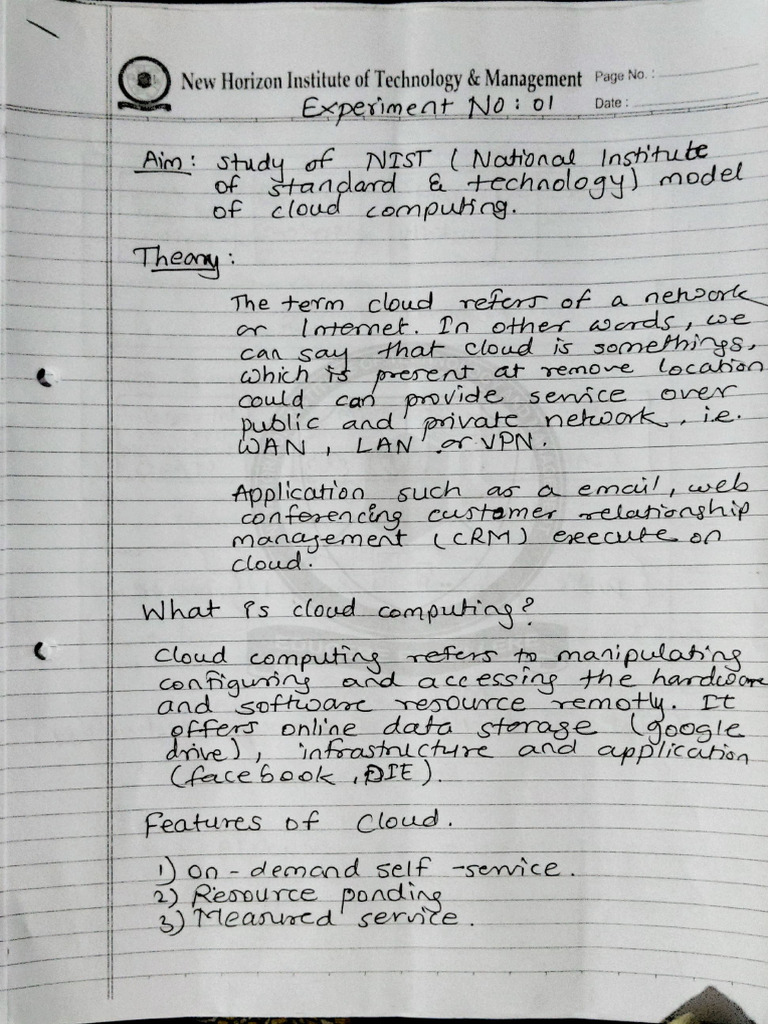 New Horizon Institute of Technology & Management Page No. :
Experiment No : 01 Date :
Aim : study of NIST ( National Institute
of standard & technology) model
of cloud computing.
Theory :
The term cloud refers of a network
or Internet. In other words, we
can say that cloud is somethings,
which is present at remove location
could can provide service over
public and private network, i.e.
WAN , LAN or VPN.
Application such as a email, web
conferencing customer relationship
management (CRM) execute on
cloud.
What is cloud computing?
Cloud computing refers to manipulating
configuring and accessing the hardware
and software resource remotly. It
offers online data storage (google
drive), infrastructure and application
(facebook ,
Features of Cloud.
1) on - demand self - service.
2) Resource ponding
3) Measured service.